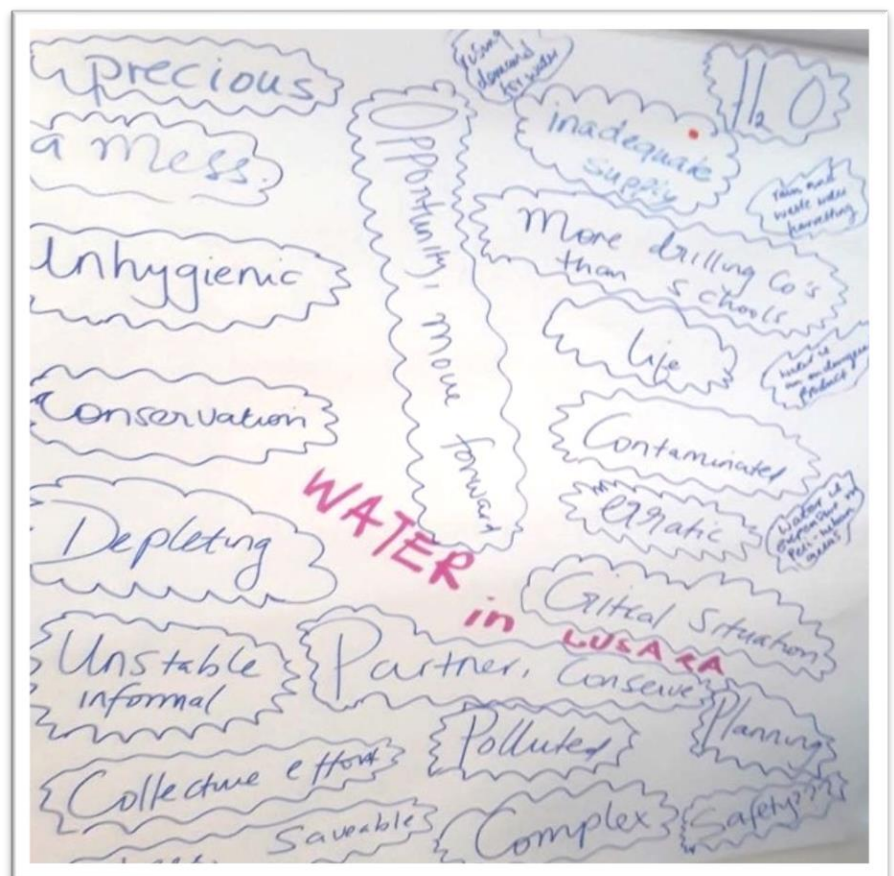 precious
a mess.
Unhygienic
Conservation
Depleting
Unstable
informal
Collective effort
Saveable
Opportunity, move forward
WATER
in LUSAKA
Partner, Conserve
Polluted
Complex
rising
demand
for water
H2O
inadequate
supply
rain and
waste water
harvesting
More drilling Co's
than schools
life
water is
an endangered
product
Contaminated
erratic
Water is
expensive in
Peri-urban
areas
Critical Situation
Planning
Safety???